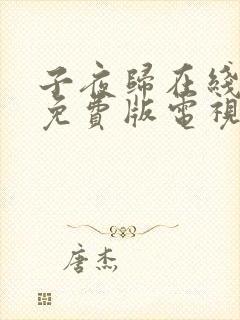 子夜歸在綫
免費版電視
唐杰